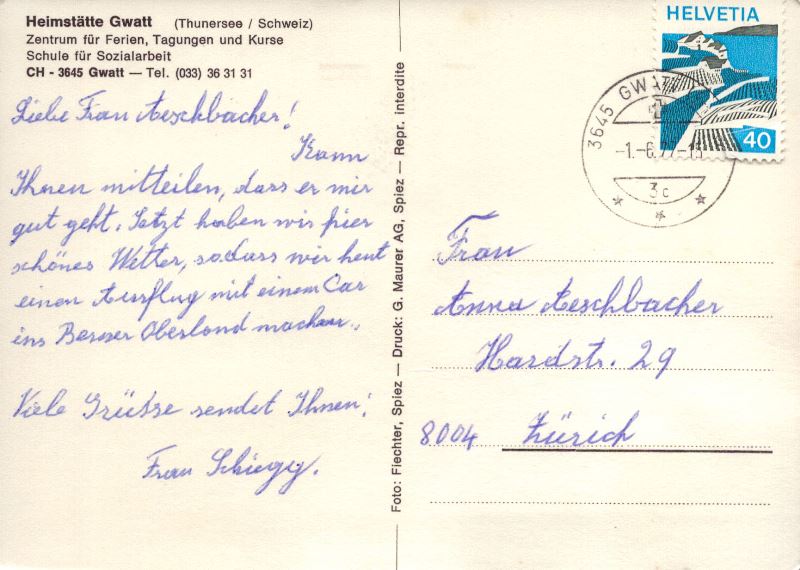 Heimstätte Gwatt (Thunersee / Schweiz)
Zentrum für Ferien, Tagungen und Kurse
Schule für Sozialarbeit
CH - 3645 Gwatt — Tel. (033) 36 31 31
Liebe Frau Aeschbacher!
Kann
Ihnen mitteilen, dass er mir
gut geht. Jetzt haben wir hier
schönes Wetter, sodass wir heut
einen Ausflug mit einem Car
ins Berner Oberland machen.
Viele Grüsse sendet Ihnen:
Frau Schiegg.
Foto: Fiechter, Spiez — Druck: G. Maurer AG, Spiez — Repr. interdite —
HELVETIA
40
3645 GWATT
-1.-6.77-15
3c
Frau
Anna Aeschbacher
Hardstr. 29
8004 Zürich